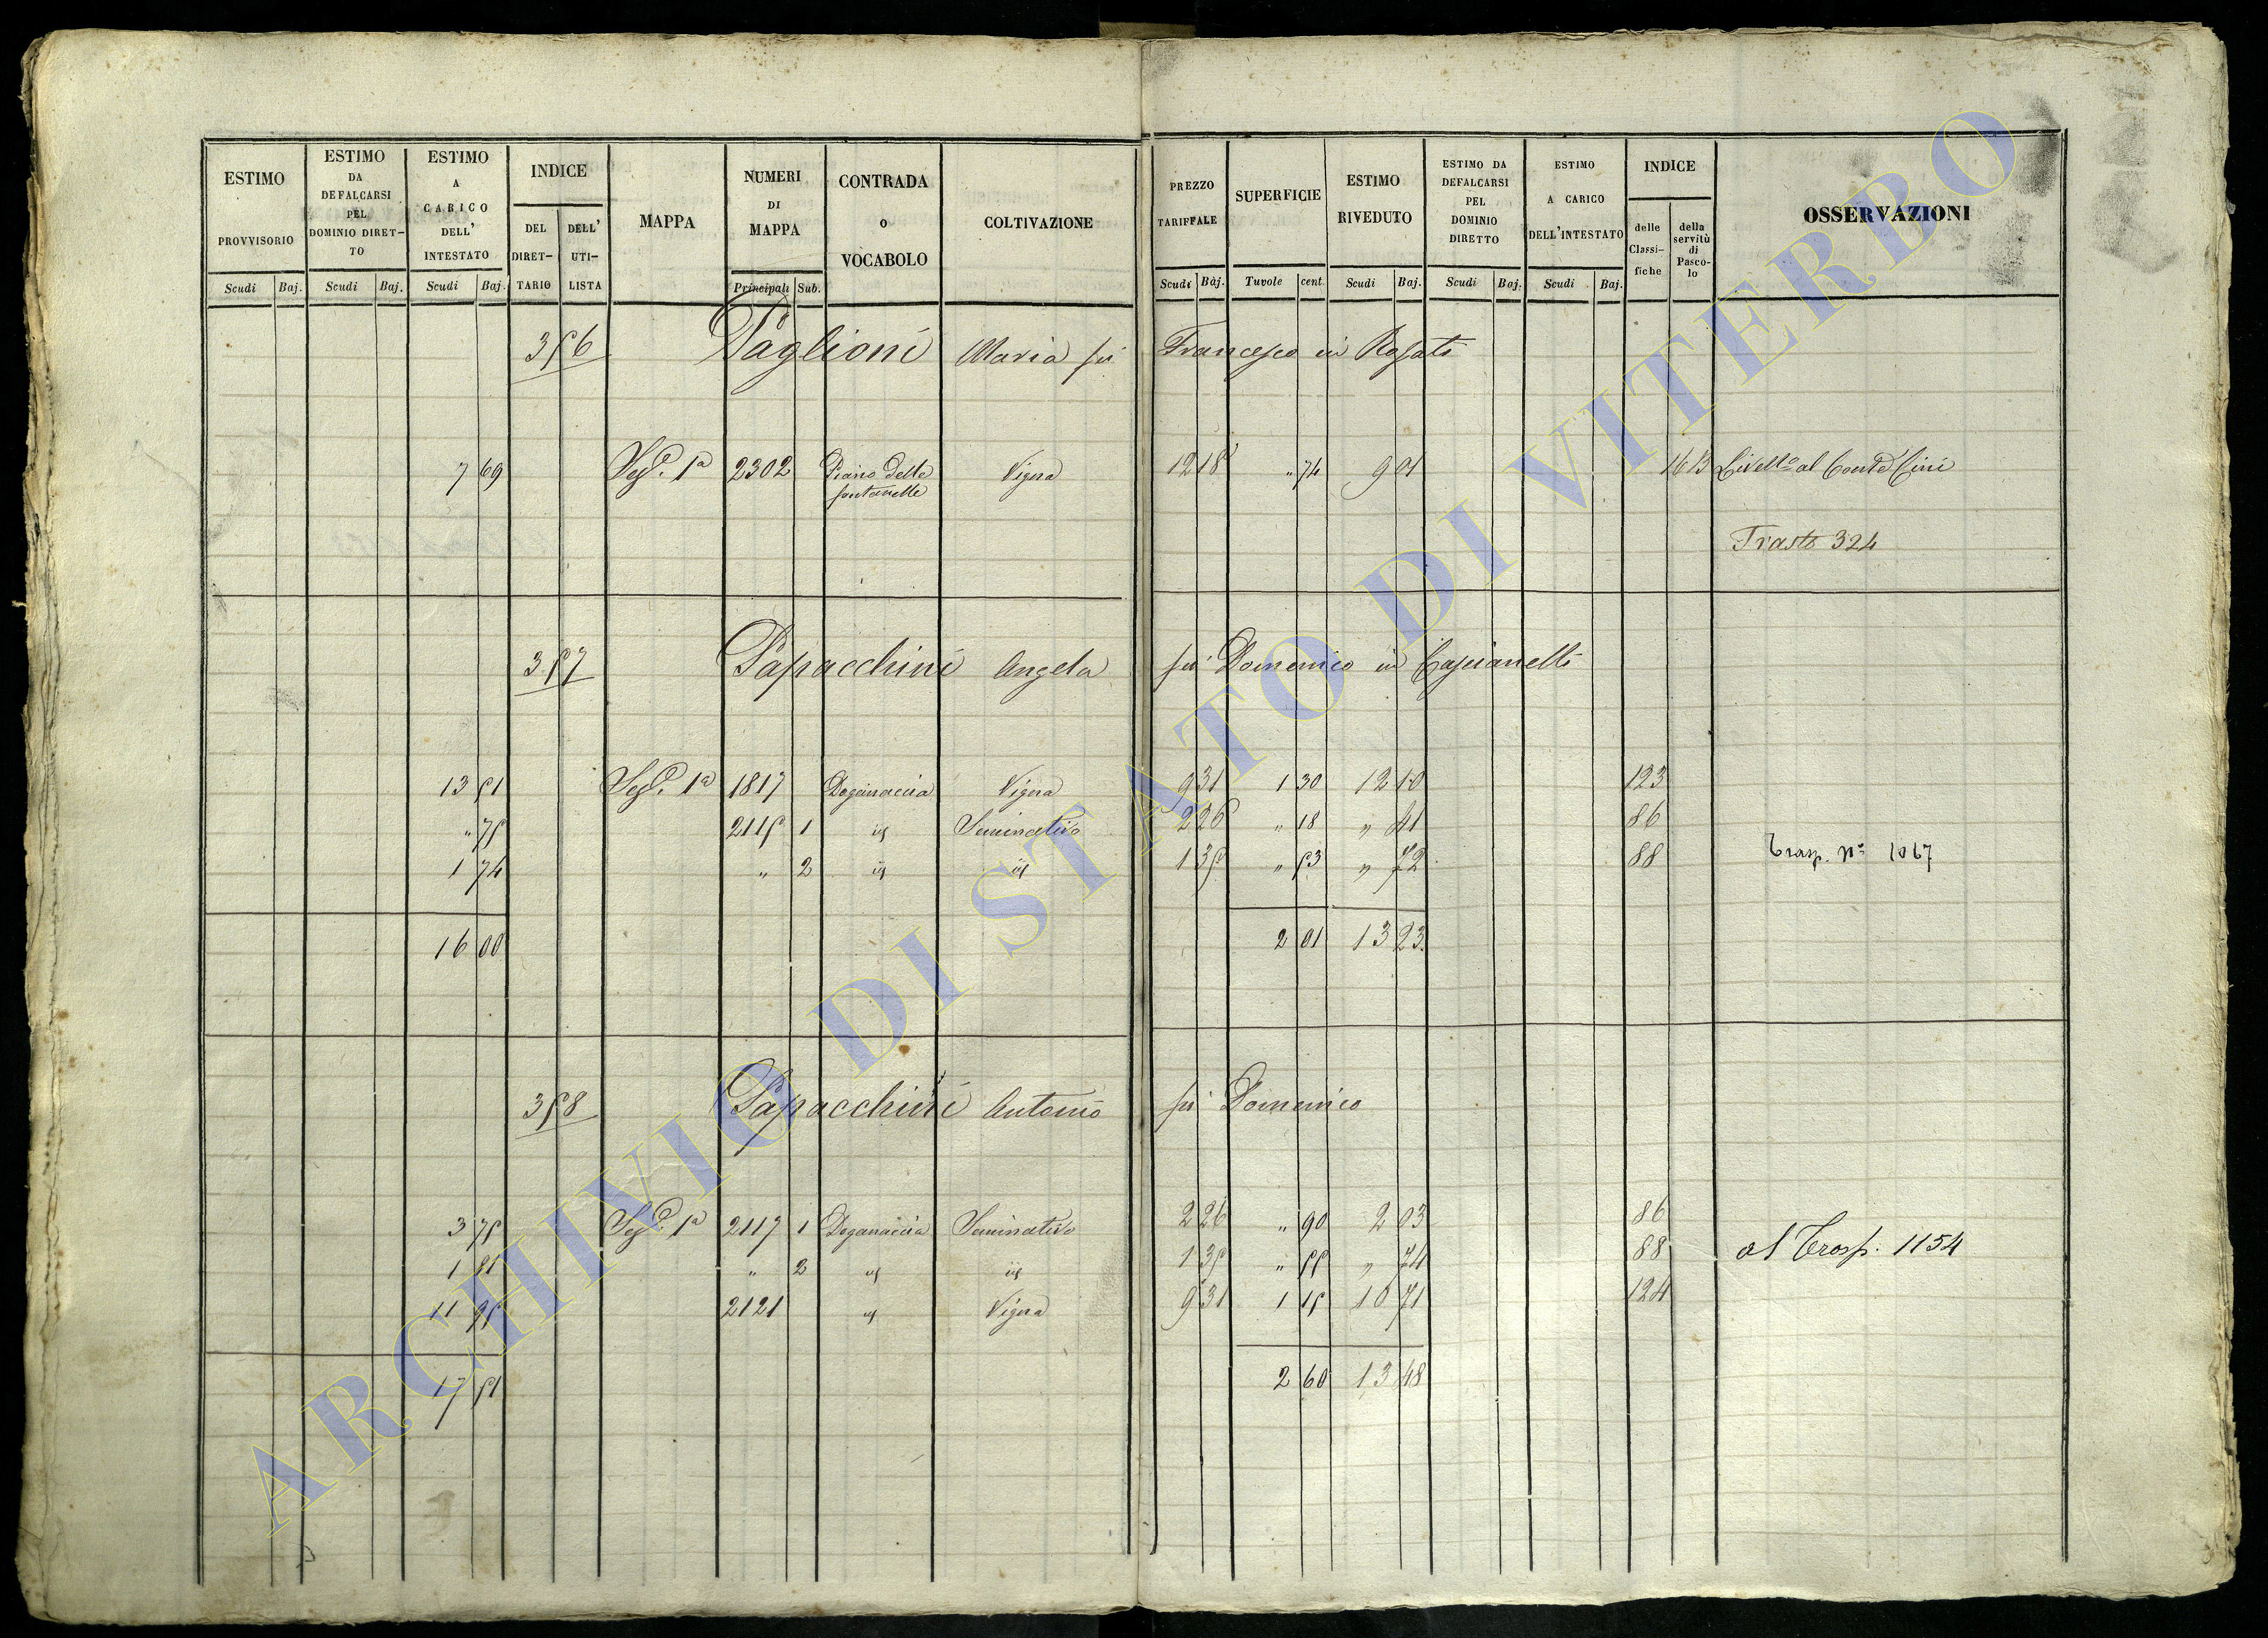 ESTIMO PROVVISORIO
Scudi Baj.
ESTIMO DA DEFALCARSI PEL DOMINIO DIRETTO
Scudi Baj.
ESTIMO A CARICO DELL' INTESTATO
Scudi Baj.
INDICE
DEL DIRET-TARIO
DELL' UTI-LISTA
MAPPA
NUMERI DI MAPPA
Principali Sub.
CONTRADA o VOCABOLO
COLTIVAZIONE
PREZZO TARIFFALE
Scudi Baj.
SUPERFICIE
Tavole cent.
ESTIMO RIVEDUTO
Scudi Baj.
ESTIMO DA DEFALCARSI PEL DOMINIO DIRETTO
Scudi Baj.
ESTIMO A CARICO DELL'INTESTATO
Scudi Baj.
INDICE
delle Classi-fiche
della servitù di Pasco-lo
OSSERVAZIONI
356 Paglioni Maria fu Francesco in Rosati
7 69 Sez. 1a 2302 Piano delle fontanelle Vigna 12 18 " 74 9 01 Livello al Conte Cini
Trasto 324
357 Papacchini Angela fu Domenico in Cascianelli
13 51 Sez. 1a 1817 Doganaccia Vigna 9 31 1 30 12 10 123
" 75 2115 1 id Seminativo 2 26 " 18 " 41 86
1 74 " 2 id id 1 35 " 53 " 72 88 Trasp. No 1067
16 00 2 01 13 23
358 Papacchini Antonio fu Domenico
3 75 Sez. 1a 2117 1 Doganaccia Seminativo 2 26 " 90 2 03 86
1 81 " 2 id id 1 35 " 55 " 74 88 al Trasp. 1154
11 95 2121 id Vigna 9 31 1 15 10 71 124
17 51 2 60 13 48
ARCHIVIO DI STATO DI VITERBO